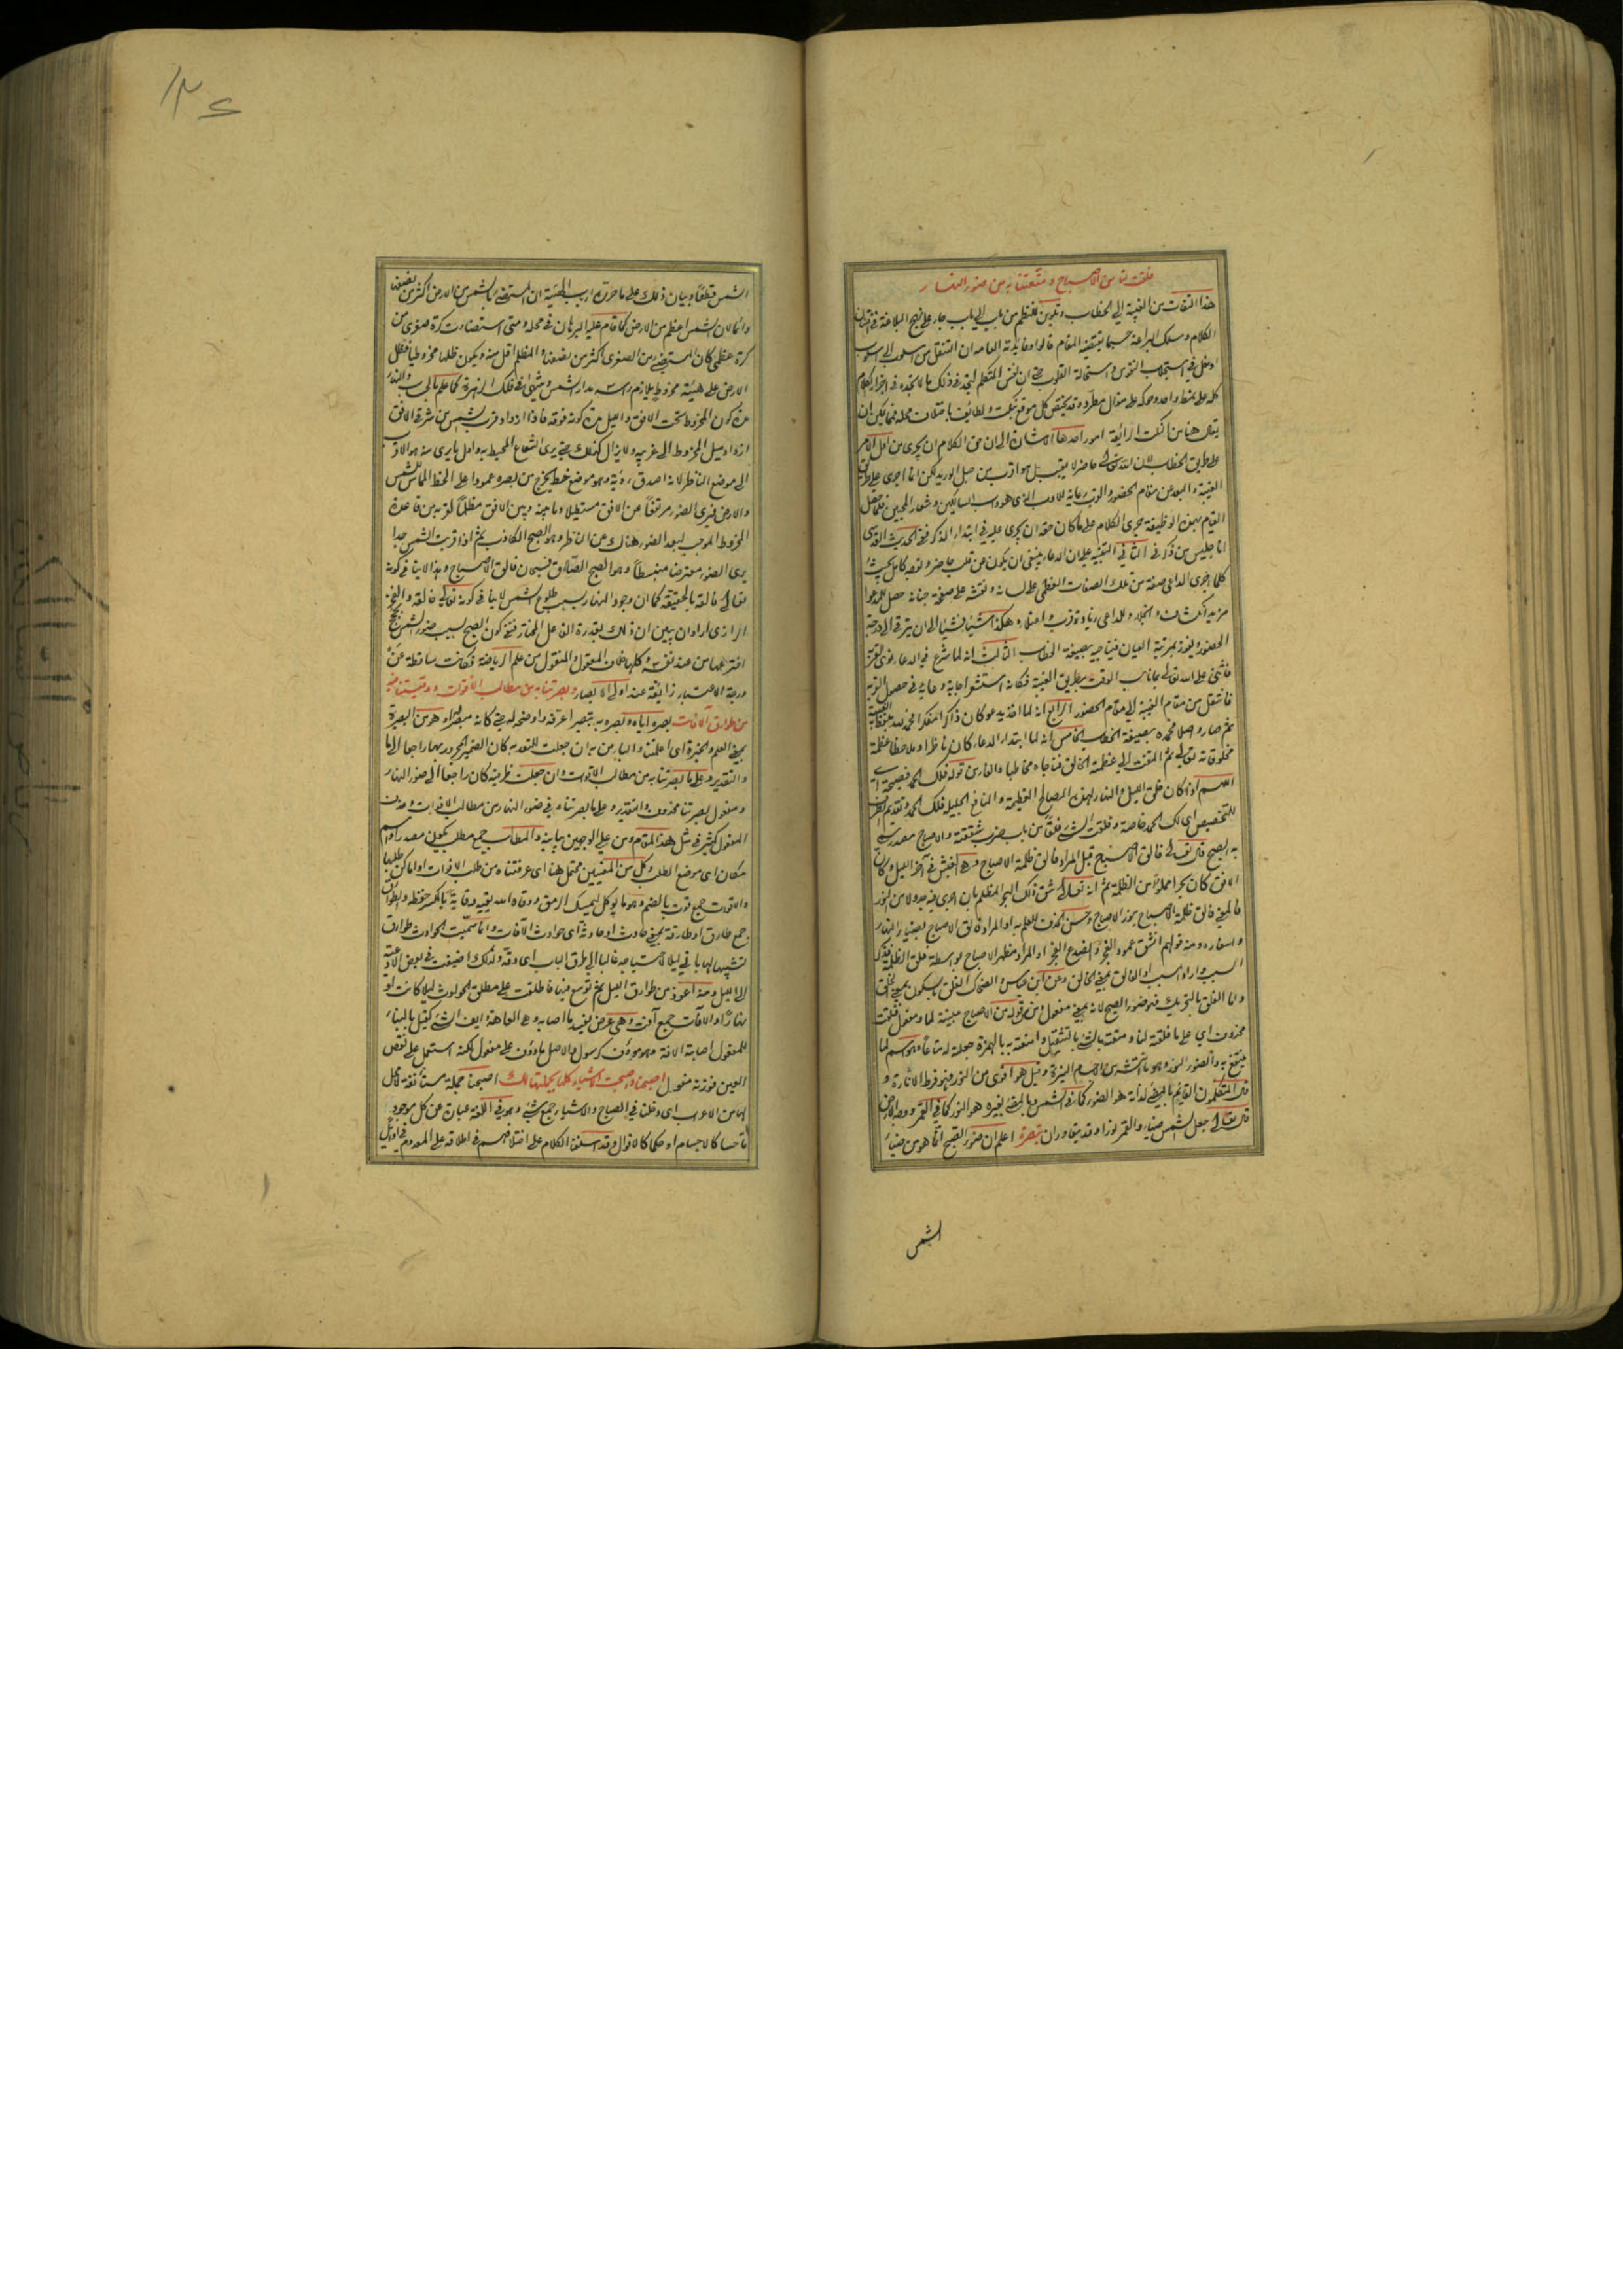 فلقت لنا من الاصباح ومتعتنا به من ضوء النهار
هذا التفات من الغيبة الى الخطاب وتلوين للنظم من باب الى باب جار على نهج البلاغة في افتنان
الكلام ومسلك البراعة حسبما يقتضيه المقام قالوا وفايدته العامه ان التنقل من اسلوب الى اسلوب
ادخل في استجلاب النفوس واستمالة القلوب
كله على نمط واحد وحركه على منوال مطرد وقد يختص كل موقع بنكت ولطائف باختلاف محله فمما يمكن ان
يقال هنا من النكت الرائقة امور احدها الاشارة الى ان حق الكلام ان يجرى من اول الامر
على طريق الخطاب لان الله تعالى حاضر لا يغيب بل هو اقرب من حبل الوريد لكن انما اجرى على طريق
الغيبة والبعد عن مقام الحضور والقرب رعاية للادب الذى هو داب السالكين وشعار المحبين فلما حصل
القيام بهذه الوظيفة جرى الكلام على ما كان حقه ان يجرى عليه في ابتداء الذكر ففى الحديث القدسى
انا جليس من ذكرنى الثانى التنبيه على ان الدعاء ينبغى ان يكون من قلب حاضر وتوجه كامل بحيث
كلما اجرى الداعى صفة من تلك الصفات العظمى على لسانه ونقشه على صفحة جنانه حصل للمدعو
مزيد انكشاف وانجلاء وللداعى زيادة قرب واعتلاء وهكذا شيئا فشيئا الى ان يترقى الى درجة
الحضور ويفوز بمرتبة العيان فيناجيه بصيغة الخطاب الثالث انه لما شرع في الدعاء
فاثنى على الله تعالى بما ناسب الوقت بطريق الغيبة فكانه استشعر اجابة دعايه في حصول القرب
فانتقل من مقام الغيبة الى مقام الحضور الرابع انه لما
ثم صار واصلا فحمده بصيغة الخطاب الخامس انه لما ابتدا الدعاء كان ناظرا وملاحظا عظمة
مخلوقاته تعالى ثم التفت الى عظمة الخالق فناجاه مخاطبا والفاء من قوله فلك الحمد فصيحة اى
اللهم اذ كان خلق الليل والنهار لهذه المصالح العظيمة والمنافع الجليلة فلك الحمد وتقديم الظرف
للتخصيص اى لك الحمد خاصة وفلقت الشئ فلقا من باب ضرب شققته والاصباح مصدر سمى
به الصبح قال تعالى فالق الاصباح قيل المراد فالق ظلمة الاصباح وهى الغبش في آخر الليل وكان
الافق كان بحرا مملوا من الظلمة ثم انه تعالى شق ذلك البحر المظلم بان اجرى فيه جدولا من النور
فالمعنى فالق ظلمة الاصباح بنور الاصباح وحسن الحذف للعلم به او المراد فالق الاصباح بضياء النهار
واسفاره ومنه قولهم انشق عمود الفجر وانصدع الفجر او المراد مظهر الاصباح بواسطة فلق الظلمة فذكر
السبب واراد المسبب او الفالق بمعنى الخالق وعن ابن عباس والضحاك الفلق بالسكون بمعنى الخلق
واما الفلق بالتحريك فهو ضوء الصبح لانه بمعنى مفعول ومن في قوله من الاصباح مبينة لما ومفعول فلقت
محذوف اى على ما فلقته لنا ومتعته بالشئ بالتثقيل وامتعته به بالهمزة جعلته له متاعا وهو اسم لما
ينتفع به والضوء النور وهو ما انتشر من الاجسام النيرة وقيل هو اقوى من النور فهو فرط الانارة و
قال المتكلمون القايم بالمضئ لذاته هو الضوء كما في الشمس وبالمضئ بغيره هو النور كما في القمر ووجه الارض
قال تعالى جعل الشمس ضياء والقمر نورا وقد يتقاوران تبصرة اعلم ان ضوء الصبح انما هو من ضياء
الشمس
الشمس قطعا وبيان ذلك على ما حرره ارباب الهيئة ان المستضئ بالشمس من الارض اكثر من نصفها
دائما لان الشمس اعظم من الارض كما قام عليه البرهان في محله ومتى استضاءت كرة صغرى من
كرة عظمى كان المستضئ من الصغرى اكثر من نصفها والمظلم اقل منه ويكون ظلها مخروطيا فظل
الارض على هيئة مخروط يلازم راسه مدار الشمس وينتهى في فلك الزهرة كما علم بالحساب والنهار
مدة كون المخروط تحت الافق والليل مدة كونه فوقه فاذا ازداد قرب الشمس من شرق الافق
ازداد ميل المخروط الى غربيه ولا يزال كذلك حتى يرى الشعاع المحيط به واول ما يرى منه هو الاقرب
الى موضع الناظر لانه اصدق رؤية وهو موضع خط يخرج من بصره عمودا على الخط المماس للشمس
والارض فيرى الضوء مرتفعا عن الافق مستطيلا وما بينه وبين الافق مظلما لقربه من قاعدة
المخروط الموجب لبعد الضوء هناك عن الناظر وهو الصبح الكاذب ثم اذا قربت الشمس جدا
يرى الضوء معترضا منبسطا وهو الصبح الصادق فسبحان فالق الاصباح وهذا لا ينافى كونه
تعالى فالقه بالحقيقة كما ان وجود النهار بسبب طلوع الشمس لا ينافى كونه تعالى خالقه والفخر
الرازى اراد ان يبين ان ذلك بقدرة الفاعل المختار فنفى كون الصبح بسبب ضوء الشمس بحجج
اخترعها من عند نفسه وكلها خلاف المعقول والمنقول من علم الرياضة فكانت ساقطة عن
درجة الاعتبار زائغة عند اولى الابصار وبصرتنا به من مطالب الاقوات ووقيتنا فيه
من طوارق الآفات بصره اياه وبصره به تبصيرا عرفه واوضحه له حتى كانه مبصر له او هو من البصيرة
بمعنى العلم والخبرة اى اعلمتنا والباء من به ان جعلت للتعديه كان الضمير المجرور بها راجعا الى ما
والتقدير وعلى ما بصرتنا به من مطالب الاقوات وان جعلت ظرفية كان راجعا الى ضوء النهار
ومفعول بصرتنا محذوف والتقدير وعلى ما بصرتناه في ضوء النهار من مطالب الاقوات وحذف
المفعول كثير في مثل هذا المقام ومن على الوجهين بيانية والمطالب جمع مطلب يكون مصدرا واسم
مكان اى موضع الطلب وكل من المعنيين محتمل هنا اى عرفتناه من طلب الاقوات او اماكن طلبها
والاقوات جمع قوت بالضم وهو ما يؤكل ليمسك الرمق ووقاه الله يقيه وقاية بالكسر حفظه والطوارق
جمع طارق او طارقة بمعنى حادث او حادثة اى حوادث الآفات وانما سميت الحوادث طوارق
تشبيها لها بالآتى ليلا لاحتياجه غالبا الى طرق الباب اى دقه ولذلك اضيفت في بعض الادعية
الى الليل ومنه اعوذ من طوارق الليل ثم توسع فيها فاطلقت على مطلق الحوادث ليلا كانت او
نهارا والآفات جمع آفت وهى عرض يفسد ما اصابه وهى العاهة وايف الشئ كقيل بالبناء
للمفعول اصابته الافة وهو مؤوف كرسول والاصل ماووف على مفعول لكنه استعمل على نقص
العين فوزنه مفول اصبحنا واصبحت الاشياء كلها بجملتها لك اصبحنا جملة مستانفة لا محل
لها من الاعراب اى دخلنا في الصباح والاشياء جمع شئ وهو في اللغة عبارة عن كل موجود
اما حسا كالاجسام او حكما كالاقوال وقد اسلفنا الكلام على اختلافهم في اطلاقه على المعدوم في اوائل